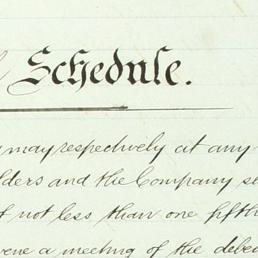 Schedule.
may respectively at any
lders and the Company s
not less than one fifth
vene a meeting of the debe